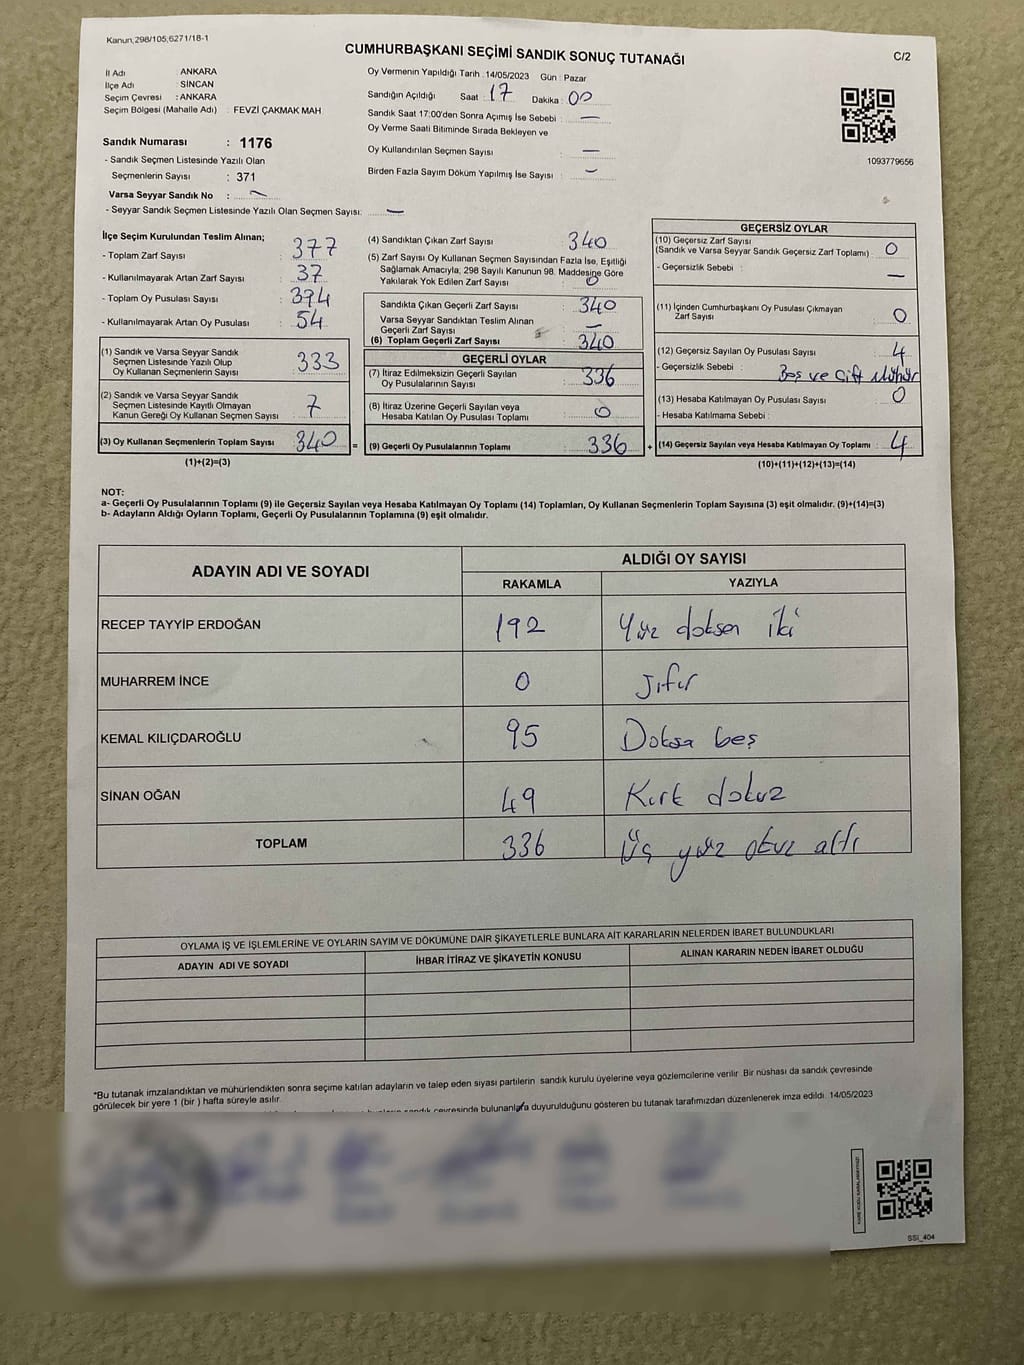 Kanun, 298/105,6271/18-1
CUMHURBAŞKANI SEÇİMİ SANDIK SONUÇ TUTANAĞI
C/2
İl Adı : ANKARA
İlçe Adı : SİNCAN
Seçim Çevresi : ANKARA
Seçim Bölgesi (Mahalle Adı) : FEVZİ ÇAKMAK MAH
Sandık Numarası : 1176
- Sandık Seçmen Listesinde Yazılı Olan
Seçmenlerin Sayısı : 371
Varsa Seyyar Sandık No : —
- Seyyar Sandık Seçmen Listesinde Yazılı Olan Seçmen Sayısı: —
Oy Vermenin Yapıldığı Tarih : 14/05/2023 Gün : Pazar
Sandığın Açıldığı Saat : 17 Dakika : 00
Sandık Saat 17:00'den Sonra Açımış İse Sebebi : —
Oy Verme Saati Bitiminde Sırada Bekleyen ve
Oy Kullandırılan Seçmen Sayısı : —
Birden Fazla Sayım Döküm Yapılmış İse Sayısı : —
1093779656
İlçe Seçim Kurulundan Teslim Alınan;
- Toplam Zarf Sayısı : 377
- Kullanılmayarak Artan Zarf Sayısı : 37
- Toplam Oy Pusulası Sayısı : 394
- Kullanılmayarak Artan Oy Pusulası : 54
(1) Sandık ve Varsa Seyyar Sandık
Seçmen Listesinde Yazılı Olup
Oy Kullanan Seçmenlerin Sayısı : 333
(2) Sandık ve Varsa Seyyar Sandık
Seçmen Listesinde Kayıtlı Olmayan
Kanun Gereği Oy Kullanan Seçmen Sayısı : 7
(3) Oy Kullanan Seçmenlerin Toplam Sayısı : 340 =
(1)+(2)=(3)
(4) Sandıktan Çıkan Zarf Sayısı : 340
(5) Zarf Sayısı Oy Kullanan Seçmen Sayısından Fazla İse, Eşitliği
Sağlamak Amacıyla, 298 Sayılı Kanunun 98. Maddesine Göre
Yakılarak Yok Edilen Zarf Sayısı : 0
Sandıkta Çıkan Geçerli Zarf Sayısı : 340
Varsa Seyyar Sandıktan Teslim Alınan
Geçerli Zarf Sayısı : —
(6) Toplam Geçerli Zarf Sayısı : 340
GEÇERLİ OYLAR
(7) İtiraz Edilmeksizin Geçerli Sayılan
Oy Pusulalarının Sayısı : 336
(8) İtiraz Üzerine Geçerli Sayılan veya
Hesaba Katılan Oy Pusulası Toplamı : 0
(9) Geçerli Oy Pusulalarının Toplamı : 336 +
GEÇERSİZ OYLAR
(10) Geçersiz Zarf Sayısı
(Sandık ve Varsa Seyyar Sandık Geçersiz Zarf Toplamı) : 0
- Geçersizlik Sebebi : —
(11) İçinden Cumhurbaşkanı Oy Pusulası Çıkmayan
Zarf Sayısı : 0
(12) Geçersiz Sayılan Oy Pusulası Sayısı : 4
- Geçersizlik Sebebi : Boş ve Çift Mühür
(13) Hesaba Katılmayan Oy Pusulası Sayısı : 0
- Hesaba Katılmama Sebebi :
(14) Geçersiz Sayılan veya Hesaba Katılmayan Oy Toplamı : 4
(10)+(11)+(12)+(13)=(14)
NOT:
a- Geçerli Oy Pusulalarının Toplamı (9) ile Geçersiz Sayılan veya Hesaba Katılmayan Oy Toplamı (14) Toplamları, Oy Kullanan Seçmenlerin Toplam Sayısına (3) eşit olmalıdır. (9)+(14)=(3)
b- Adayların Aldığı Oyların Toplamı, Geçerli Oy Pusulalarının Toplamına (9) eşit olmalıdır.
ADAYIN ADI VE SOYADI
ALDIĞI OY SAYISI
RAKAMLA YAZIYLA
RECEP TAYYİP ERDOĞAN 192 Yüz doksan iki
MUHARREM İNCE 0 Sıfır
KEMAL KILIÇDAROĞLU 95 Doksa beş
SİNAN OĞAN 49 Kırk dokuz
TOPLAM 336 Üç yüz otuz altı
OYLAMA İŞ VE İŞLEMLERİNE VE OYLARIN SAYIM VE DÖKÜMÜNE DAİR ŞİKAYETLERLE BUNLARA AİT KARARLARIN NELERDEN İBARET BULUNDUKLARI
ADAYIN ADI VE SOYADI İHBAR İTİRAZ VE ŞİKAYETİN KONUSU ALINAN KARARIN NEDEN İBARET OLDUĞU
*Bu tutanak imzalandıktan ve mühürlendikten sonra seçime katılan adayların ve talep eden siyasi partilerin sandık kurulu üyelerine veya gözlemcilerine verilir. Bir nüshası da sandık çevresinde
görülecek bir yere 1 (bir ) hafta süreyle asılır.
sandık çevresinde bulunanlara duyurulduğunu gösteren bu tutanak tarafımızdan düzenlenerek imza edildi. 14/05/2023
SSI_404